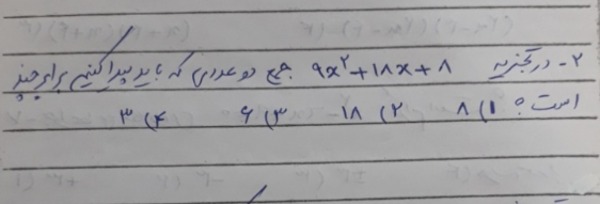 ۲- در تجزیه ۹x²+۱۸x+۸ جمع دو عددی که باید پیدا کنیم برابر چند
است؟ ۱) ۸ ۲) ۱۸ ۳) ۶ ۴) ۳